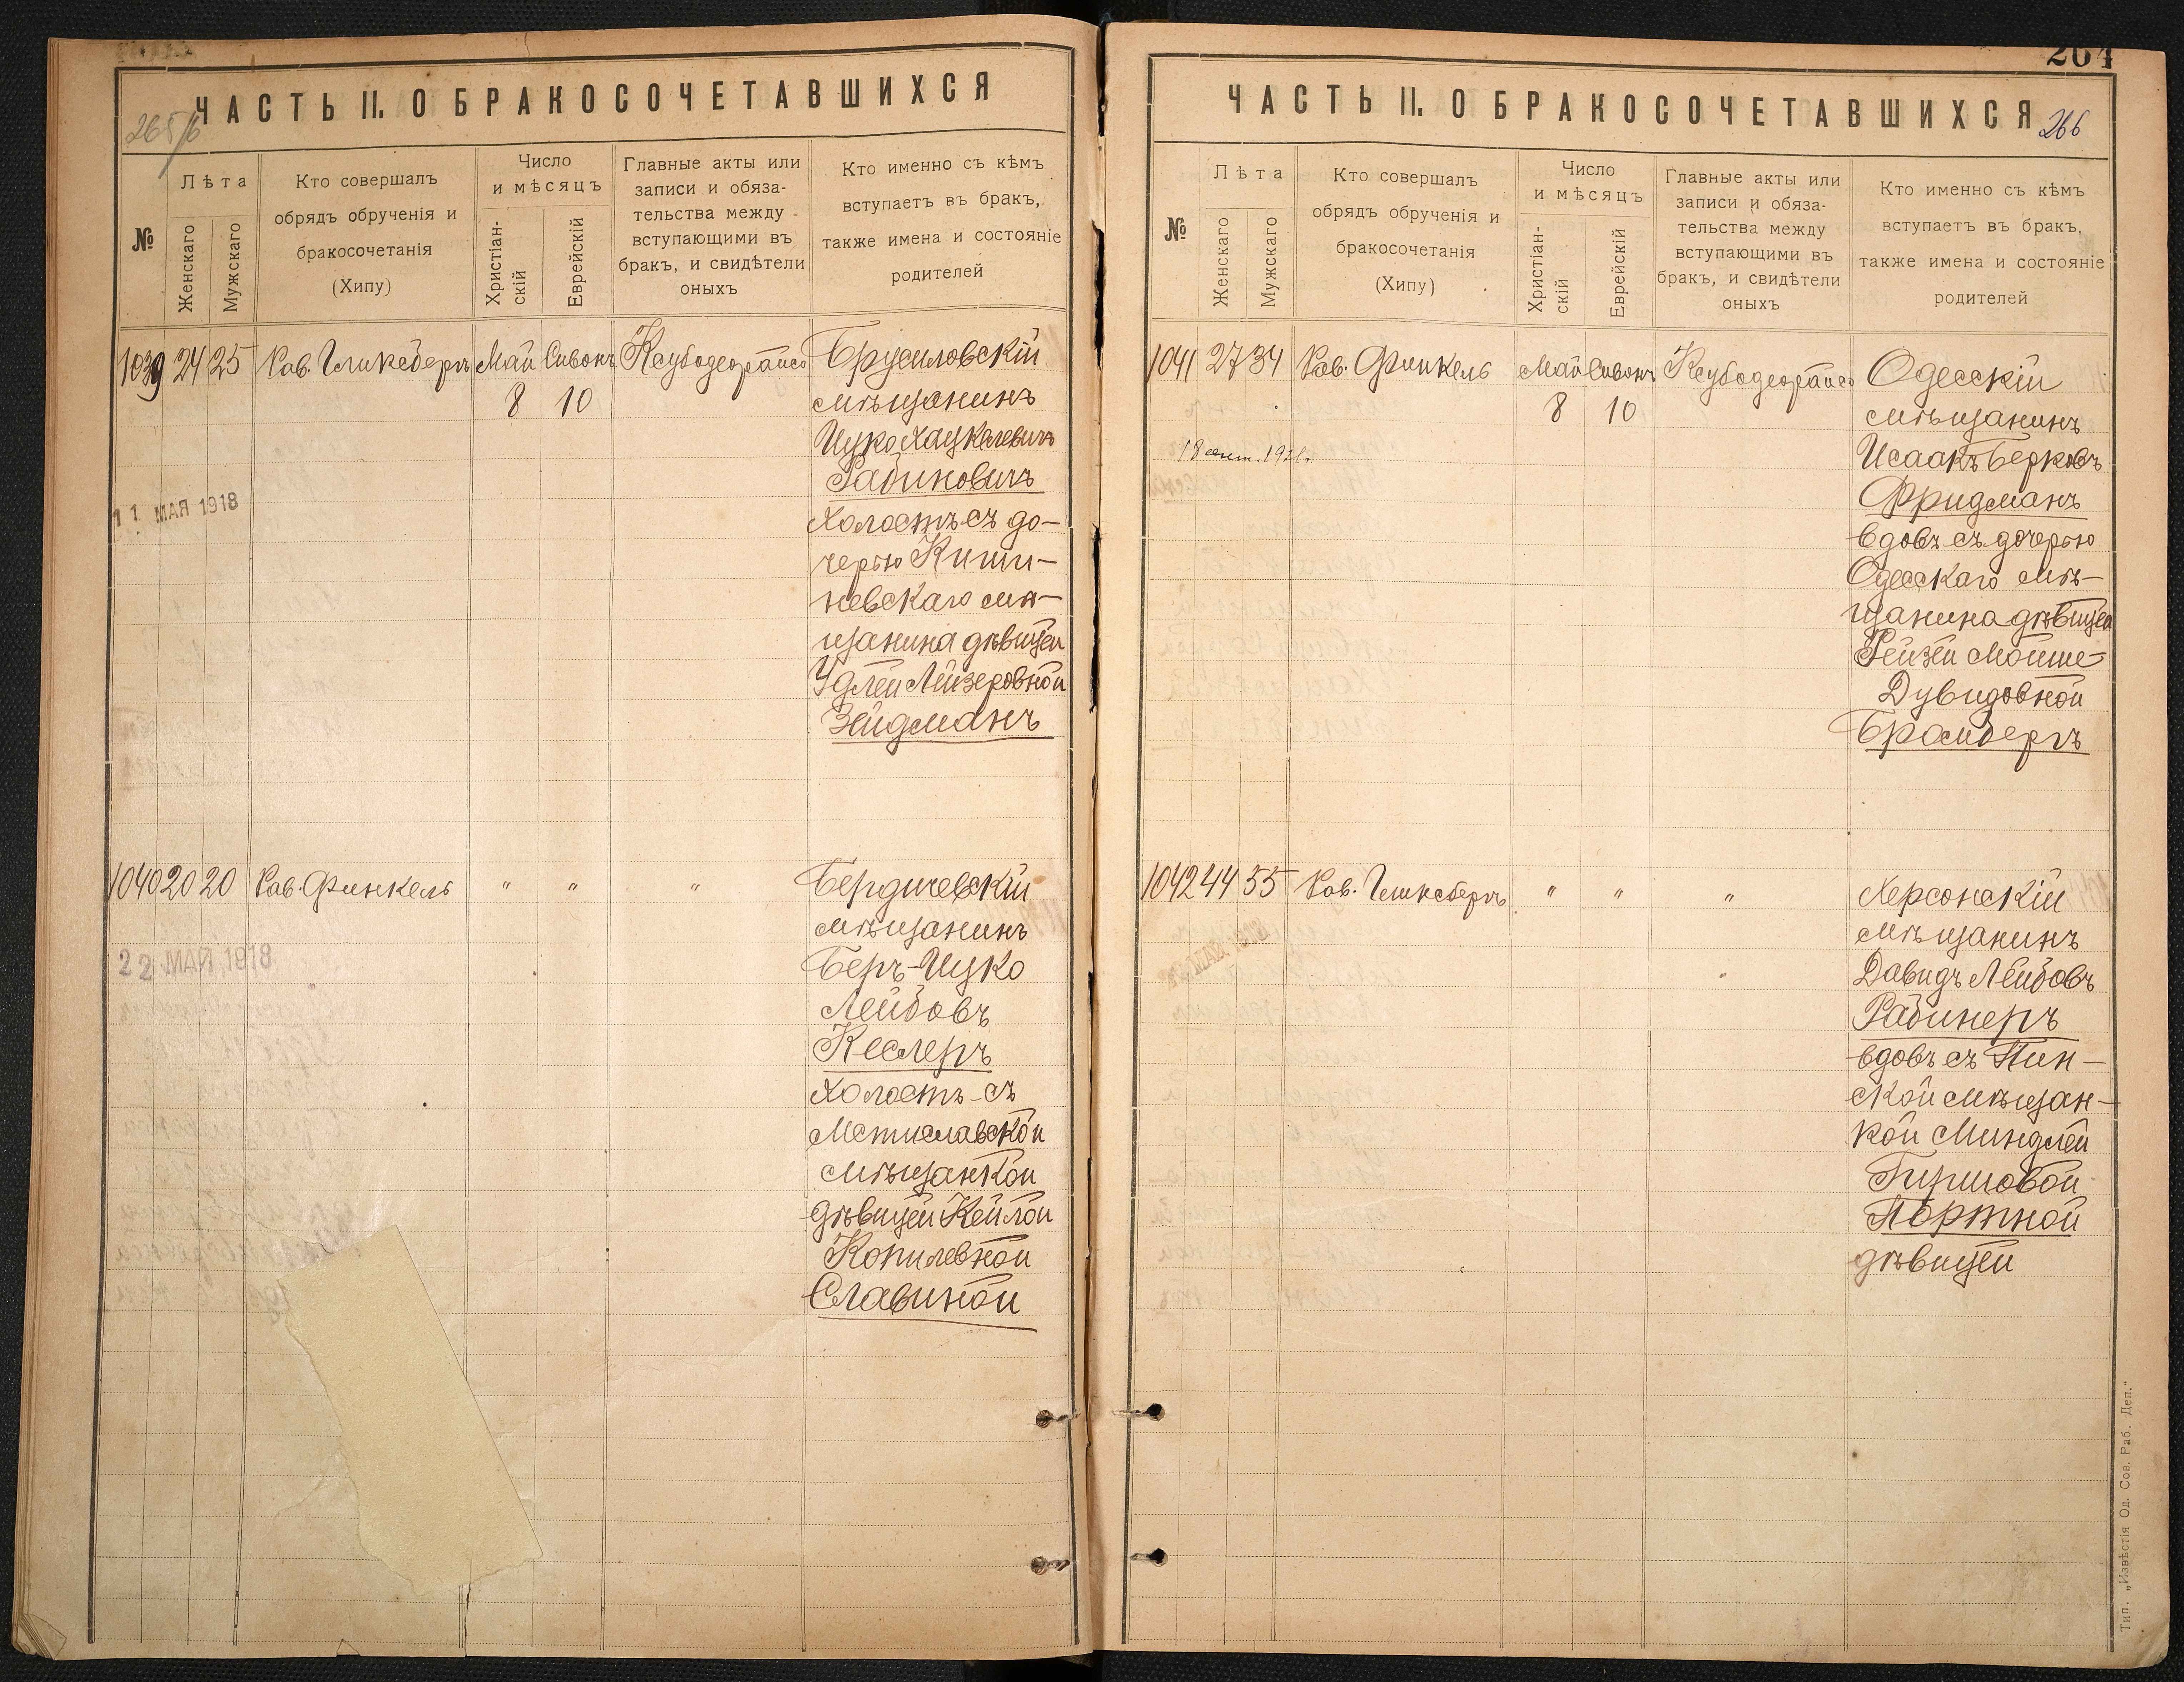 ЧАСТЬ II. О БРАКОСОЧЕТАВШИХСЯ
№
Лѣта
Женскаго
Мужскаго
Кто совершалъ
обрядъ обрученія и
бракосочетанія
(Хипу)
Число
и мѣсяцъ
Христіан-
скій
Еврейскій
Главные акты или
записи и обяза-
тельства между
вступающими въ
бракъ, и свидѣтели
оныхъ
Кто именно съ кѣмъ
вступаетъ въ бракъ,
также имена и состояніе
родителей
1039 24 25 Рав. Гликсбергъ Май Сивонъ Брусиловскій
8 10 мѣщанинъ
Ицко Хацкелевичъ
Рабиновичъ
11 МАЯ 1918
холостъ съ до-
черью Киши-
невскаго мѣ-
щанина дѣвицей
Удлей Лейзеровной
Зейдманъ
1040 20 20 Рав. Финкель " " " Бердичевскій
мѣщанинъ
22 МАЙ 1918
Беръ-Ицко
Лейбовъ
Кеслеръ
холостъ съ
Мстиславской
мѣщанкой
дѣвицей Кейлой
Копилевной
Славиной
264
ЧАСТЬ II. О БРАКОСОЧЕТАВШИХСЯ
266
№
Лѣта
Женскаго
Мужскаго
Кто совершалъ
обрядъ обрученія и
бракосочетанія
(Хипу)
Число
и мѣсяцъ
Христіан-
скій
Еврейскій
Главные акты или
записи и обяза-
тельства между
вступающими въ
бракъ, и свидѣтели
оныхъ
Кто именно съ кѣмъ
вступаетъ въ бракъ,
также имена и состояніе
родителей
1041 27 34 Рав. Финкель Май Сивонъ Одесскій
8 10 мѣщанинъ
18 сент. 1921г.
Исаакъ Берковъ
Фридманъ
вдовъ съ дочерью
Одесскаго мѣ-
щанина дѣвицей
Рейзей Мойше-
Дувидовной
Бромбергъ
1042 44 55 Рав. Гликсбергъ " " " Херсонскій
мѣщанинъ
Давидъ Лейбовъ
Рабинеръ
вдовъ съ Пин-
ской мѣщан-
кой Миндлей
Гиршовой
Портной
дѣвицей
Тип. „Извѣстія Од. Сов. Раб. Деп."